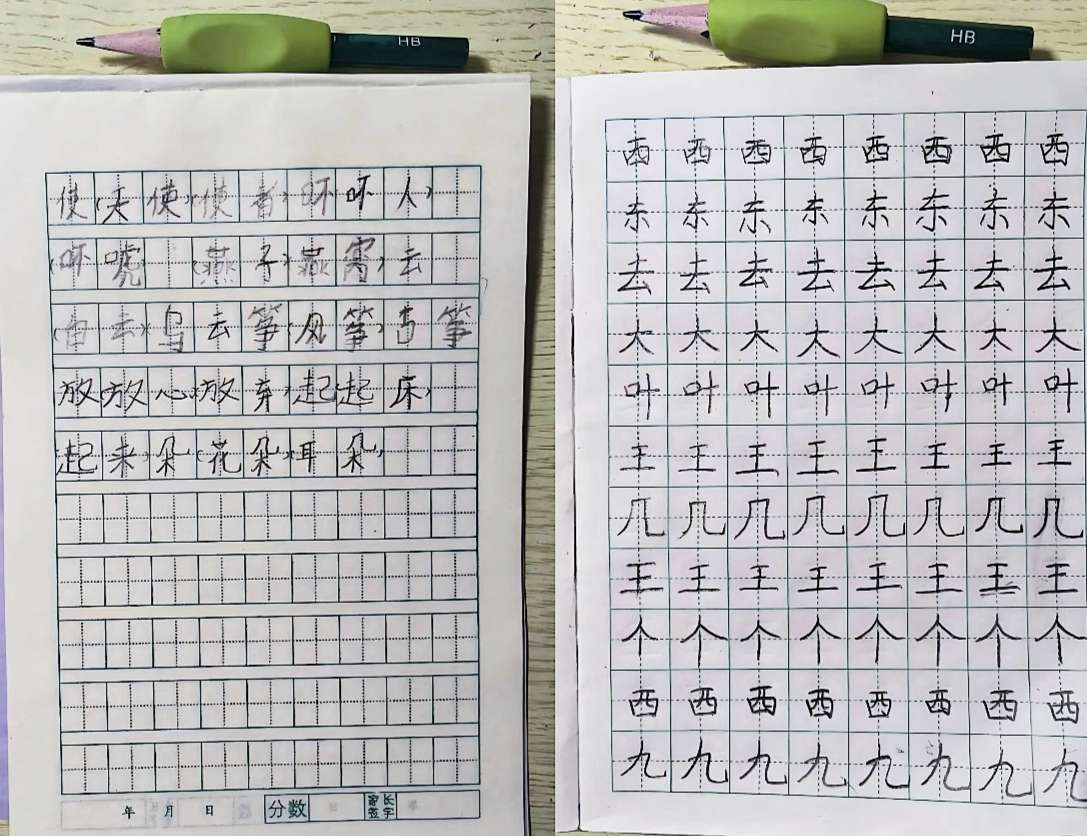 HB
使(天使)(使者)吓(吓人)
(吓唬)(燕子)(燕窝)云
(白云)(乌云筝(风筝)古筝
放(放心)(放弃)起(起床)
起来)朵(花朵)(耳朵)
年 月 日 分数 家长签字
HB
西西西西西西西西
东东东东东东东东
去去去去去去去去
大大大大大大大大
叶叶叶叶叶叶叶叶
王王王王王王王王
几几几几几几几几
王王王王王王王王
个个个个个个个个
西西西西西西西西
九九九九九九九九